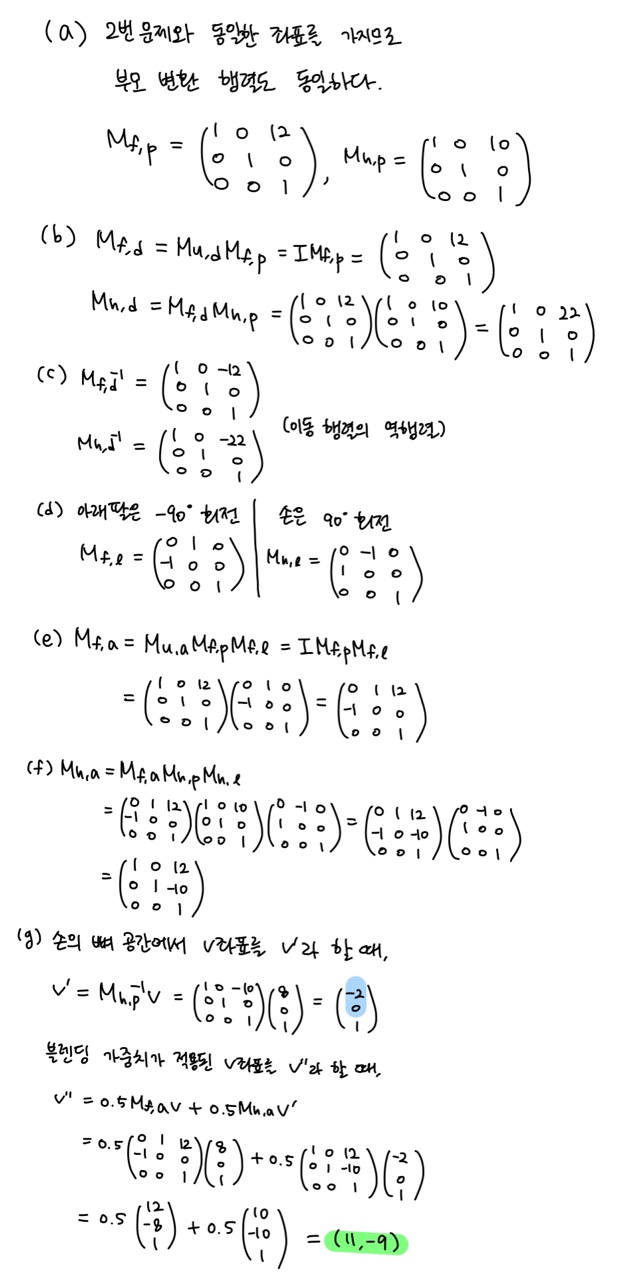 (a) 2번 문제와 동일한 좌표를 가지므로
부모 변환 행렬도 동일하다.
M_{f,p} = \begin{pmatrix} 1 & 0 & 12 \\ 0 & 1 & 0 \\ 0 & 0 & 1 \end{pmatrix}, M_{h,p} = \begin{pmatrix} 1 & 0 & 10 \\ 0 & 1 & 0 \\ 0 & 0 & 1 \end{pmatrix}
(b) M_{f,d} = M_{u,d} M_{f,p} = I M_{f,p} = \begin{pmatrix} 1 & 0 & 12 \\ 0 & 1 & 0 \\ 0 & 0 & 1 \end{pmatrix}
M_{h,d} = M_{f,d} M_{h,p} = \begin{pmatrix} 1 & 0 & 12 \\ 0 & 1 & 0 \\ 0 & 0 & 1 \end{pmatrix} \begin{pmatrix} 1 & 0 & 10 \\ 0 & 1 & 0 \\ 0 & 0 & 1 \end{pmatrix} = \begin{pmatrix} 1 & 0 & 22 \\ 0 & 1 & 0 \\ 0 & 0 & 1 \end{pmatrix}
(c) M_{f,d}^{-1} = \begin{pmatrix} 1 & 0 & -12 \\ 0 & 1 & 0 \\ 0 & 0 & 1 \end{pmatrix}
M_{h,d}^{-1} = \begin{pmatrix} 1 & 0 & -22 \\ 0 & 1 & 0 \\ 0 & 0 & 1 \end{pmatrix} (이동 행렬의 역행렬)
(d) 아래팔은 -90° 회전 | 손은 90° 회전
M_{f,l} = \begin{pmatrix} 0 & 1 & 0 \\ -1 & 0 & 0 \\ 0 & 0 & 1 \end{pmatrix} | M_{h,l} = \begin{pmatrix} 0 & -1 & 0 \\ 1 & 0 & 0 \\ 0 & 0 & 1 \end{pmatrix}
(e) M_{f,a} = M_{u,a} M_{f,p} M_{f,l} = I M_{f,p} M_{f,l}
= \begin{pmatrix} 1 & 0 & 12 \\ 0 & 1 & 0 \\ 0 & 0 & 1 \end{pmatrix} \begin{pmatrix} 0 & 1 & 0 \\ -1 & 0 & 0 \\ 0 & 0 & 1 \end{pmatrix} = \begin{pmatrix} 0 & 1 & 12 \\ -1 & 0 & 0 \\ 0 & 0 & 1 \end{pmatrix}
(f) M_{h,a} = M_{f,a} M_{h,p} M_{h,l}
= \begin{pmatrix} 0 & 1 & 12 \\ -1 & 0 & 0 \\ 0 & 0 & 1 \end{pmatrix} \begin{pmatrix} 1 & 0 & 10 \\ 0 & 1 & 0 \\ 0 & 0 & 1 \end{pmatrix} \begin{pmatrix} 0 & -1 & 0 \\ 1 & 0 & 0 \\ 0 & 0 & 1 \end{pmatrix} = \begin{pmatrix} 0 & 1 & 12 \\ -1 & 0 & -10 \\ 0 & 0 & 1 \end{pmatrix} \begin{pmatrix} 0 & -1 & 0 \\ 1 & 0 & 0 \\ 0 & 0 & 1 \end{pmatrix}
= \begin{pmatrix} 1 & 0 & 12 \\ 0 & 1 & -10 \\ 0 & 0 & 1 \end{pmatrix}
(g) 손의 뼈 공간에서 v좌표를 v'라 할 때,
v' = M_{h,p}^{-1} v = \begin{pmatrix} 1 & 0 & -10 \\ 0 & 1 & 0 \\ 0 & 0 & 1 \end{pmatrix} \begin{pmatrix} 8 \\ 0 \\ 1 \end{pmatrix} = \begin{pmatrix} -2 \\ 0 \\ 1 \end{pmatrix}
블렌딩 가중치가 적용된 v좌표를 v''라 할 때,
v'' = 0.5 M_{f,a} v + 0.5 M_{h,a} v'
= 0.5 \begin{pmatrix} 0 & 1 & 12 \\ -1 & 0 & 0 \\ 0 & 0 & 1 \end{pmatrix} \begin{pmatrix} 8 \\ 0 \\ 1 \end{pmatrix} + 0.5 \begin{pmatrix} 1 & 0 & 12 \\ 0 & 1 & -10 \\ 0 & 0 & 1 \end{pmatrix} \begin{pmatrix} -2 \\ 0 \\ 1 \end{pmatrix}
= 0.5 \begin{pmatrix} 12 \\ -8 \\ 1 \end{pmatrix} + 0.5 \begin{pmatrix} 10 \\ -10 \\ 1 \end{pmatrix} = (11, -9)